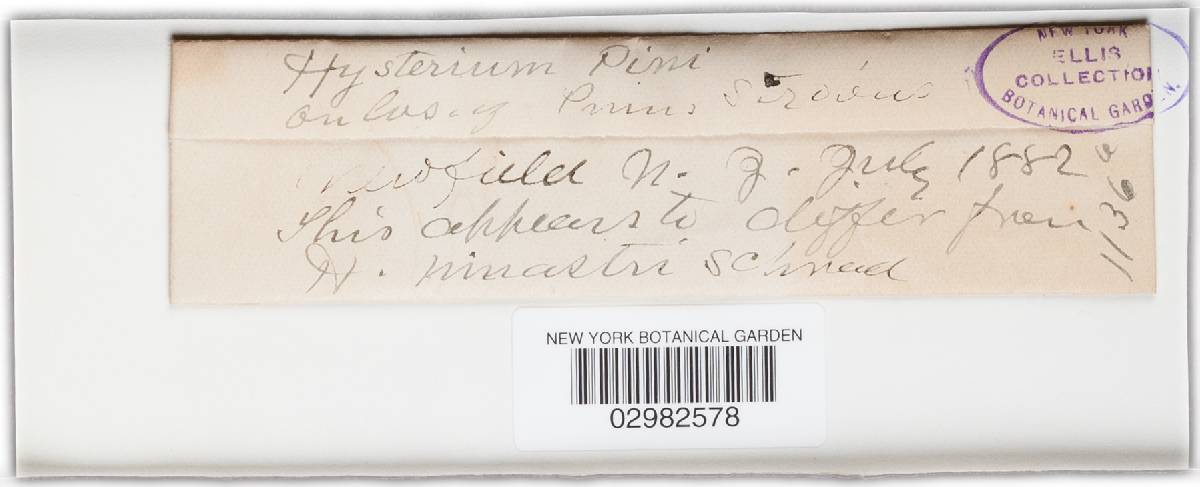 Hysterium Pini
on lvs. of Pinus Strobus
Newfield N. J. July 1882
This appears to differ from
H. pinastri Schrad
NEW YORK
ELLIS
COLLECTION
BOTANICAL GARDEN.
1136
NEW YORK BOTANICAL GARDEN
02982578